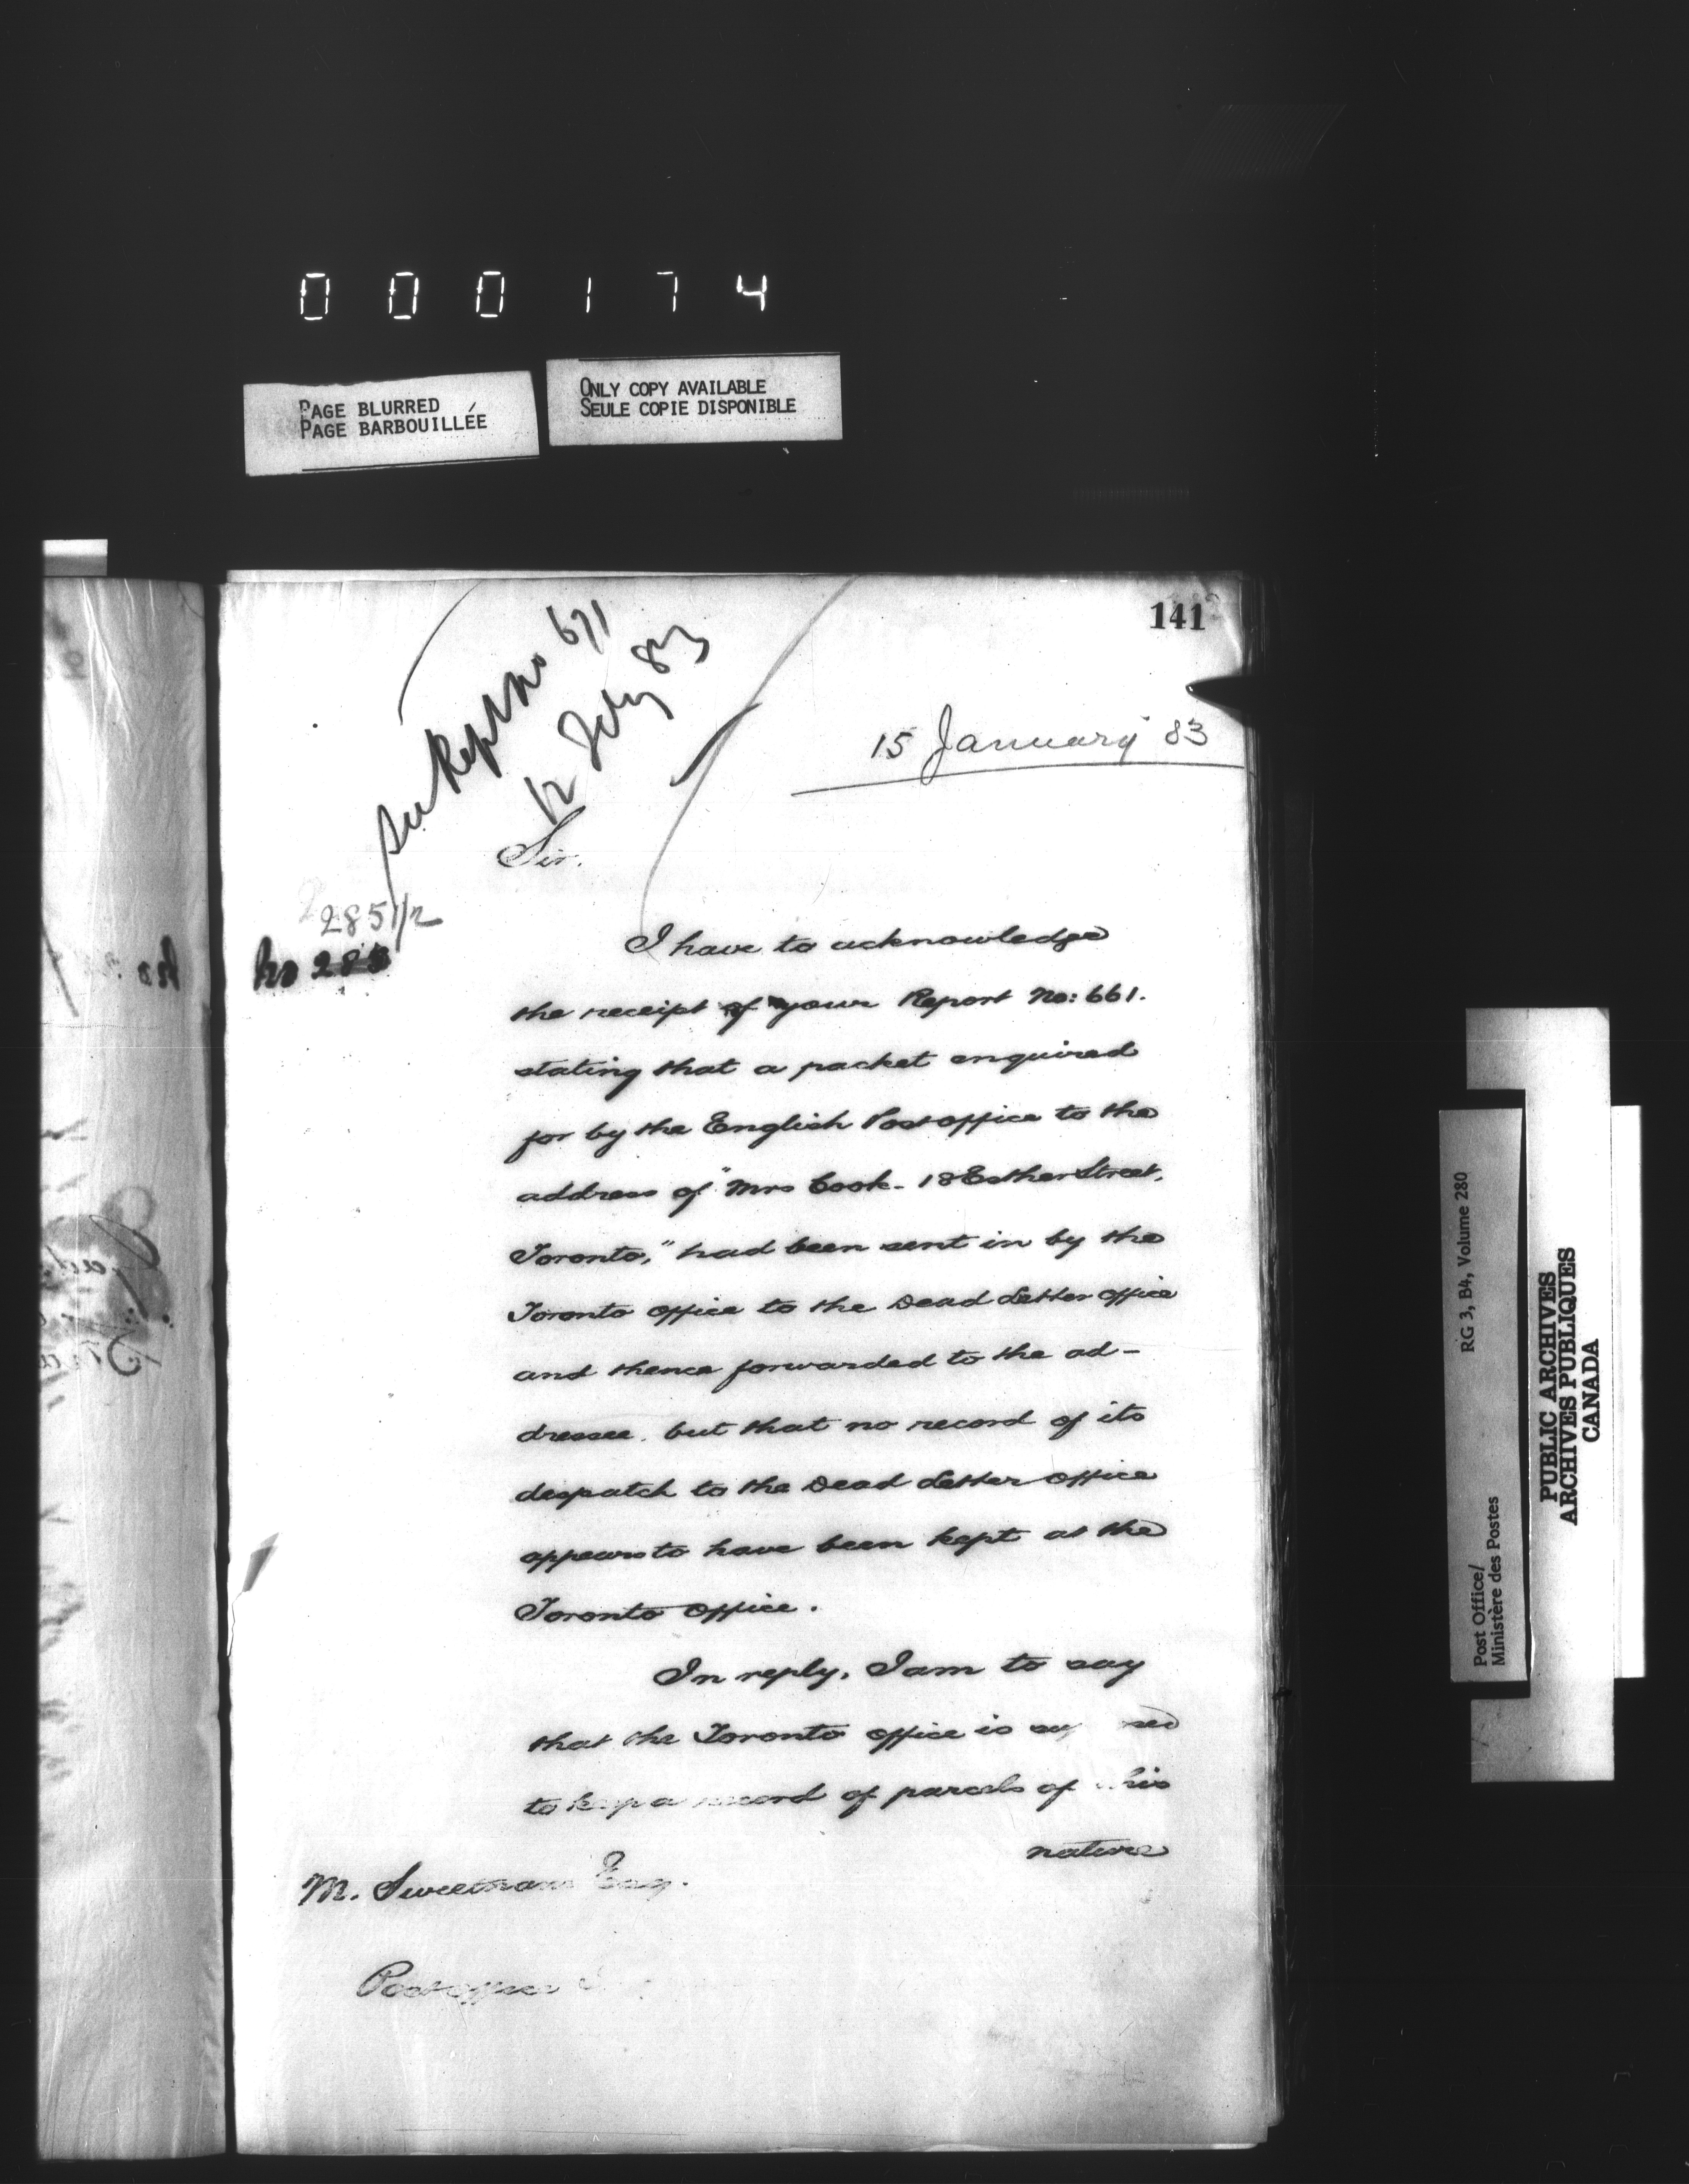 000174
PAGE BLURRED
PAGE BARBOUILLÉE
ONLY COPY AVAILABLE
SEULE COPIE DISPONIBLE
141
See Rept No 671
12 July 83
15 January 83
Sir.
285 1/2
No 285
I have to acknowledge
the receipt of your Report No: 661.
stating that a packet enquired
for by the English Post office to the
address of "Mrs Cook - 18 Esther Street,
Toronto," had been sent in by the
Toronto office to the Dead Letter office
and thence forwarded to the ad-
dressee, but that no record of its
despatch to the Dead Letter office
appears to have been kept at the
Toronto office.
In reply, I am to say
that the Toronto office is
to keep a record of parcels of this
nature
M. Sweetnam Esq.
Post office
RG 3, B4, Volume 280
Post Office/
Ministère des Postes
PUBLIC ARCHIVES
ARCHIVES PUBLIQUES
CANADA